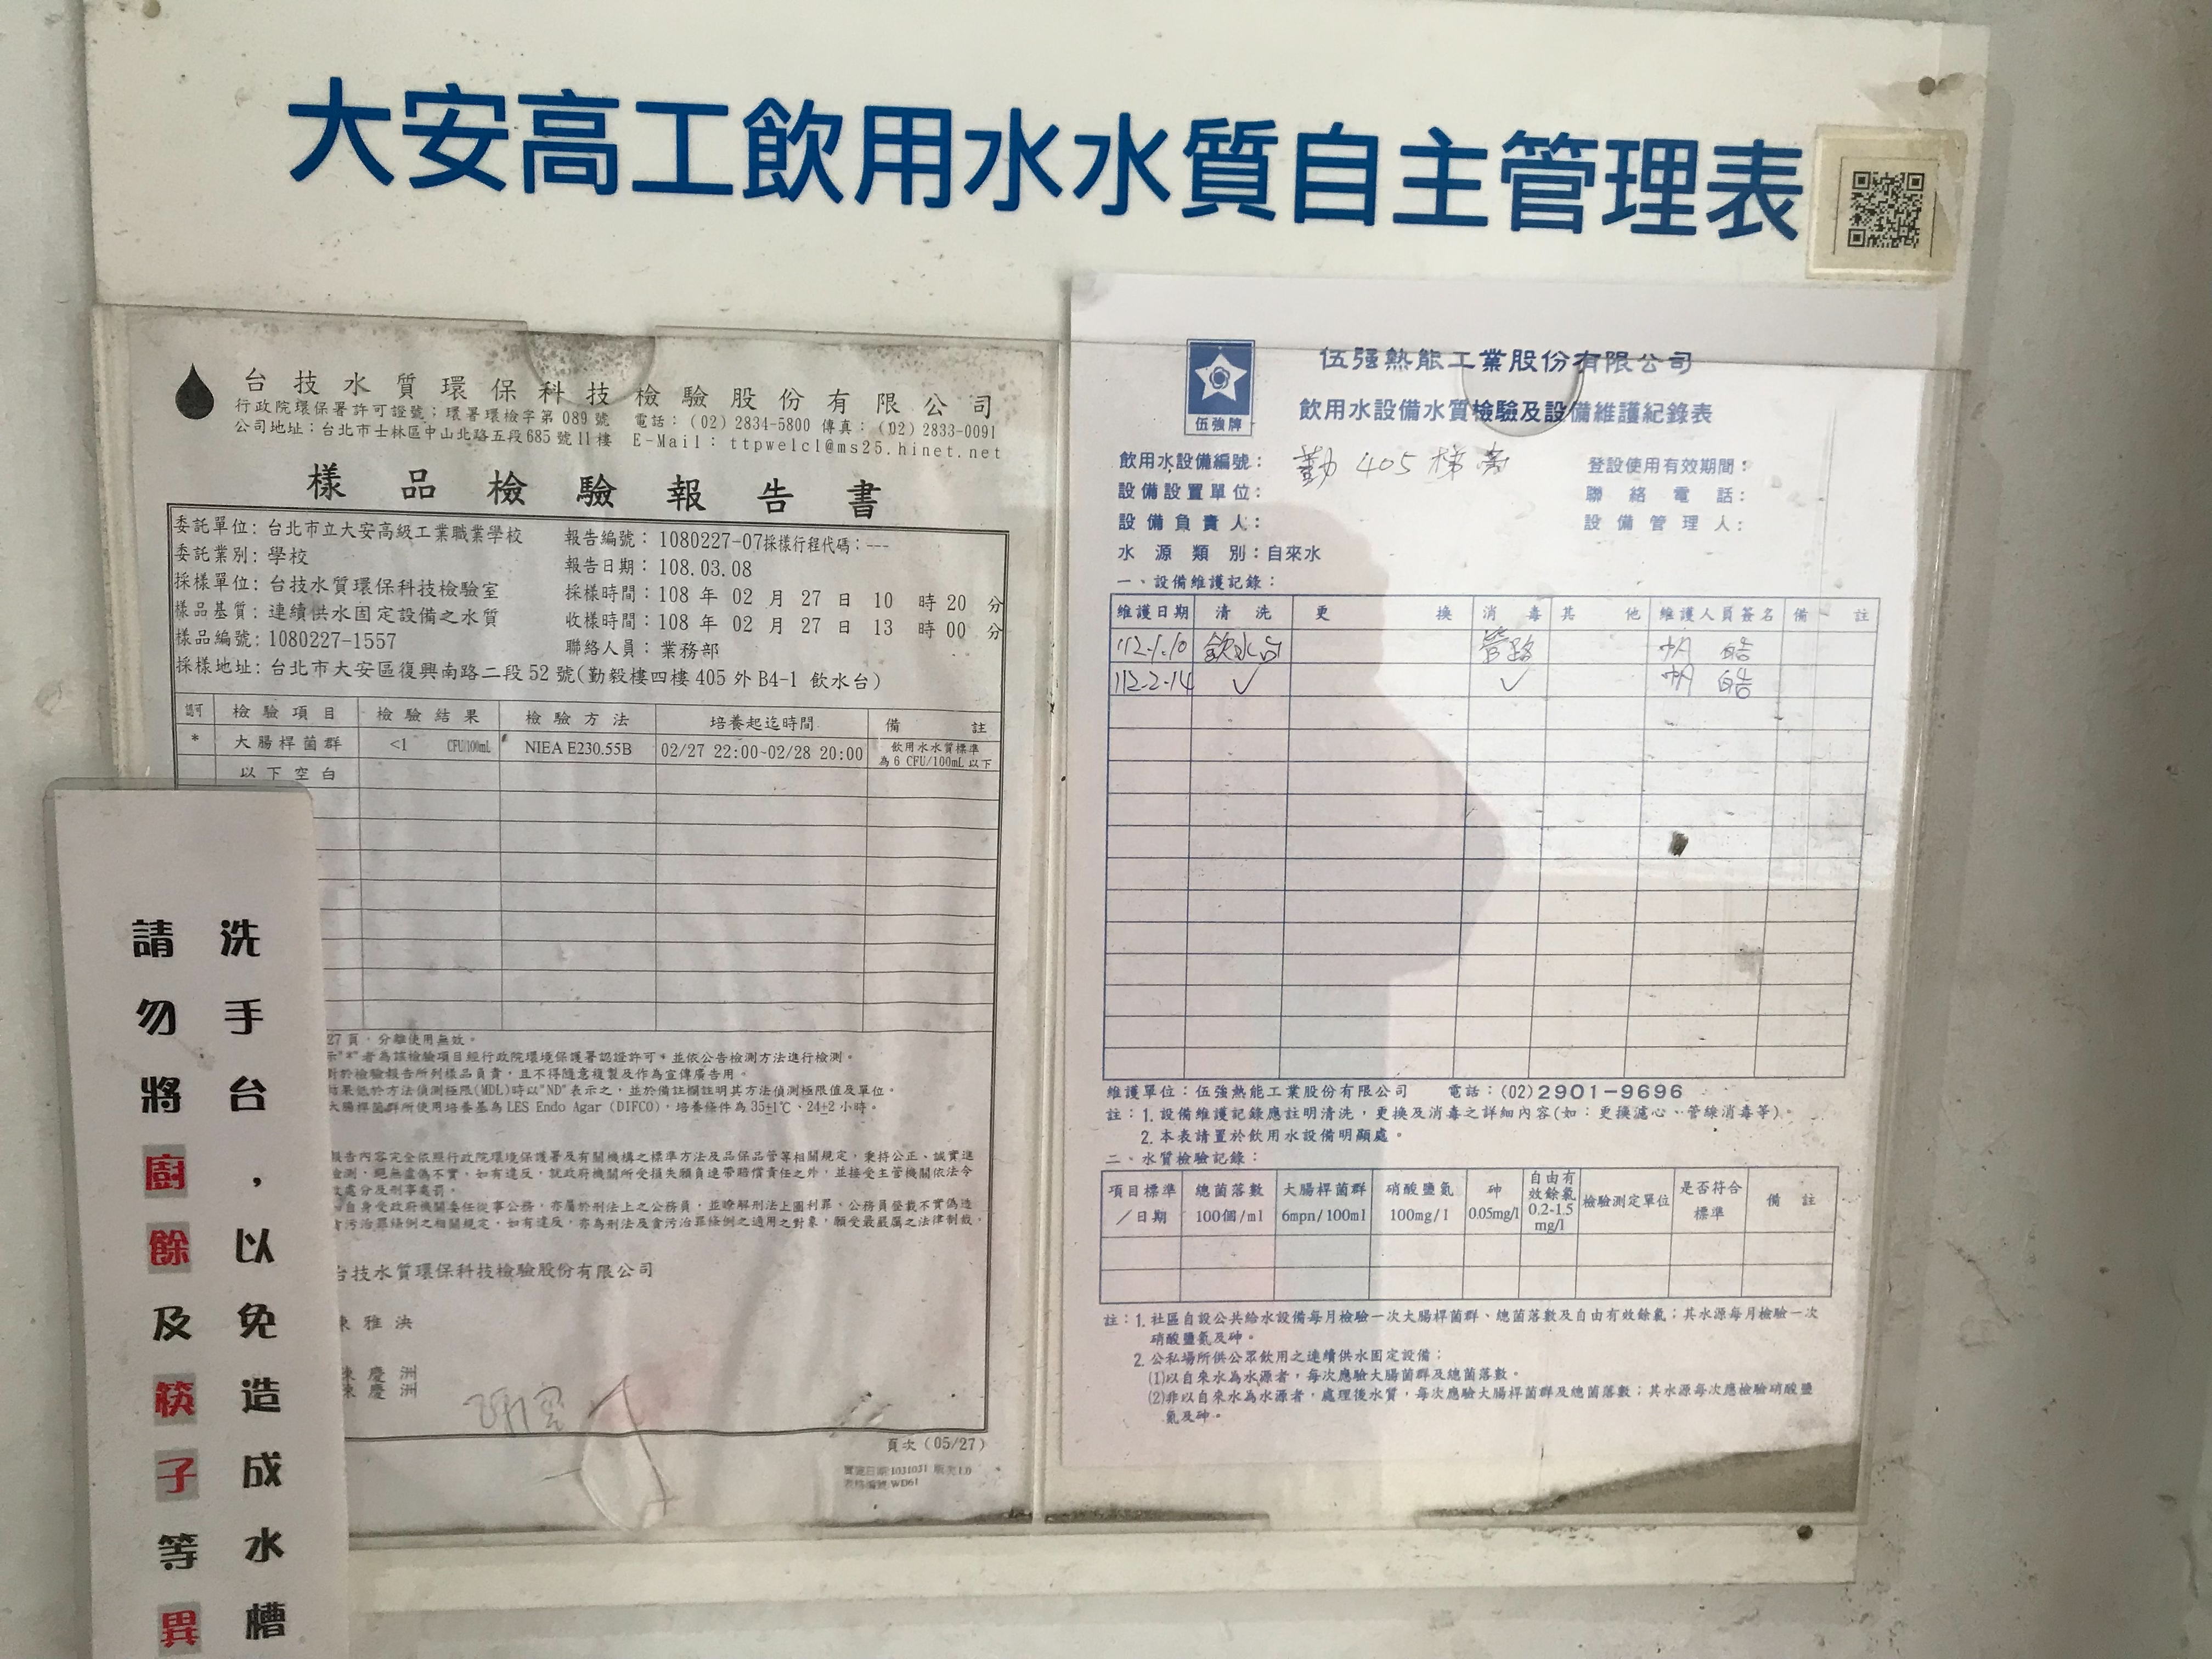 大安高工飲用水水質自主管理表
台技水質環保科技檢驗股份有限公司
行政院環保署許可證號：環署環檢字第 089 號 電話：(02) 2834-5800 傳真：(02) 2833-0091
公司地址：台北市士林區中山北路五段685號11樓 E-Mail: ttpwelcl@ms25.hinet.net
樣品檢驗報告書
委託單位：台北市立大安高級工業職業學校 報告編號：1080227-07採樣行程代碼：---
委託業別：學校 報告日期：108.03.08
採樣單位：台技水質環保科技檢驗室 採樣時間：108 年 02 月 27 日 10 時 20 分
樣品基質：連續供水固定設備之水質 收樣時間：108 年 02 月 27 日 13 時 00 分
樣品編號：1080227-1557 聯絡人員：業務部
採樣地址：台北市大安區復興南路二段52號(勤毅樓四樓405外B4-1 飲水台)
認可 檢驗項目 檢驗結果 檢驗方法 培養起迄時間 備註
* 大腸桿菌群 <1 CFU/100mL NIEA E230.55B 02/27 22:00~02/28 20:00 飲用水水質標準
為6 CFU/100mL以下
以下空白
27頁，分離使用無效。
示"*"者為該檢驗項目經行政院環境保護署認證許可，並依公告檢測方法進行檢測。
對於檢驗報告所列樣品負責，且不得隨意複製及作為宣傳廣告用。
結果低於方法偵測極限(MDL)時以"ND"表示之，並於備註欄註明其方法偵測極限值及單位。
大腸桿菌群所使用培養基為LES Endo Agar (DIFCO)，培養條件為35±1℃、24±2小時。
報告內容完全依照行政院環境保護署及有關機構之標準方法及品保品管等相關規定，秉持公正、誠實進
檢測，絕無虛偽不實，如有違反，就政府機關所受損失願負連帶賠償責任之外，並接受主管機關依法令
處分及刑事處罰。
自身受政府機關委任從事公務，亦屬於刑法上之公務員，並瞭解刑法上圖利罪、公務員登載不實偽造
貪污治罪條例之相關規定，如有違反，亦為刑法及貪污治罪條例之適用之對象，願受最嚴厲之法律制裁，
台技水質環保科技檢驗股份有限公司
雅泱
陳慶洲
陳慶洲
頁次 (05/27)
伍強牌
伍強熱能工業股份有限公司
飲用水設備水質檢驗及設備維護紀錄表
飲用水設備編號：勤 405 梯旁 登設使用有效期間：
設備設置單位： 聯絡電話：
設備負責人： 設備管理人：
水源類別：自來水
一、設備維護記錄：
維護日期 清洗 更換 消毒 其他 維護人員簽名 備註
112.1.10 飲水台 管路
112.2.14 ✓ ✓
維護單位：伍強熱能工業股份有限公司 電話：(02)2901-9696
註：1.設備維護記錄應註明清洗，更換及消毒之詳細內容(如：更換濾心、管線消毒等)。
2.本表請置於飲用水設備明顯處。
二、水質檢驗記錄：
項目標準／日期 總菌落數100個/ml 大腸桿菌群6mpn/100ml 硝酸鹽氮100mg/l 砷0.05mg/l 自由有效餘氯0.2-1.5mg/l 檢驗測定單位 是否符合標準 備註
註：1.社區自設公共給水設備每月檢驗一次大腸桿菌群、總菌落數及自由有效餘氯；其水源每月檢驗一次
硝酸鹽氮及砷。
2.公私場所供公眾飲用之連續供水固定設備：
(1)以自來水為水源者，每次應驗大腸菌群及總菌落數。
(2)非以自來水為水源者，處理後水質，每次應驗大腸桿菌群及總菌落數；其水源每次應檢驗硝酸鹽
氮及砷。
請勿將廚餘及筷子等異
洗手台，以免造成水槽